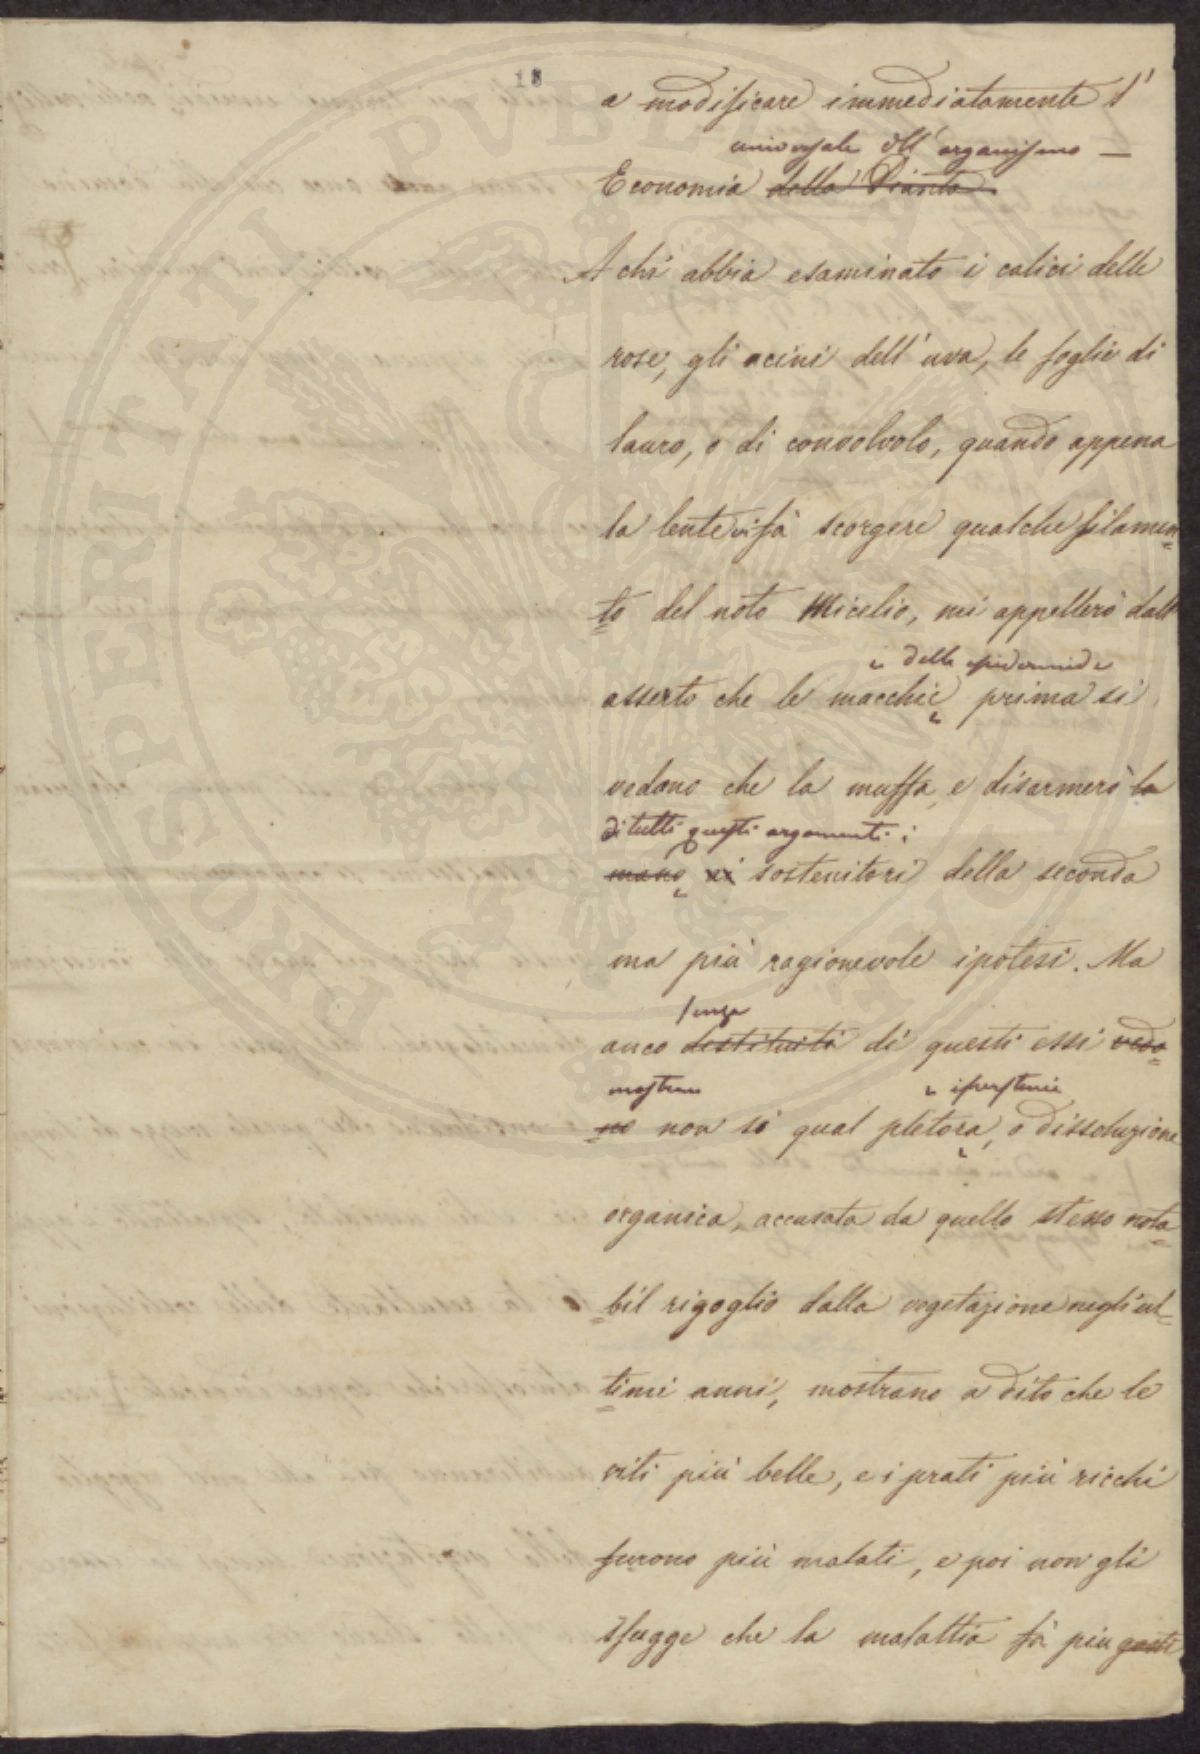 18
a modificare immediatamente l'
universale dell'organismo —
Economia della Pianta.
A chi abbia esaminato i calici delle
rose, gli acini dell'uva, le foglie di
lauro, o di convolvolo, quando appena
la lente vi fà scorgere qualche filamen=
to del noto Micelio, mi appellerò dall'
e della epidermide
asserto che le macchie prima si
vedono che la muffa, e disarmerò la
di tutti questi argomenti i
mano ai sostenitori della seconda
ma più ragionevole ipotesi. Ma
senza
anco destituiti di questi essi vedo=
mostrano
no non so qual pletora, o dissoluzione
organica, accusata da quello stesso nota=
bil rigoglio dalla vegetazione negli ul=
timi anni, mostrano a dito che le
viti più belle, e i prati più ricchi
furono più malati, e poi non gli
sfugge che la malattia fà più guasti
PROSPERITATI PVBLICAE